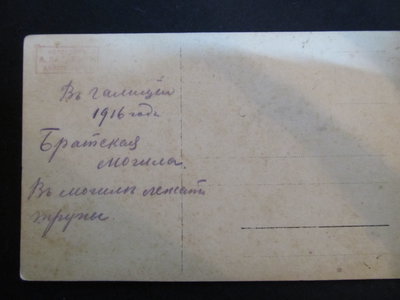 Въ галиціи
1916 годъ
Братская
могила.
Въ могилы лежатъ
трупы.